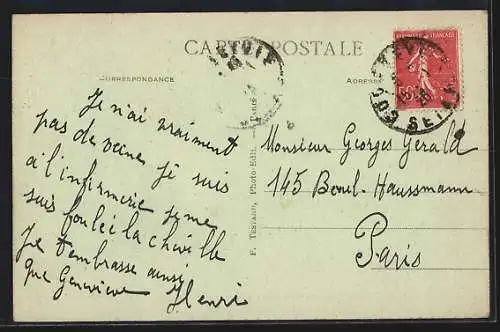 CARTE POSTALE
CORRESPONDANCE
ADRESSE
Je n'ai vraiment
pas de veine je suis
à l'infirmerie je me
suis foulé la cheville
Je t'embrasse ainsi
que Geneviève Henri
Monsieur Georges Gerald
145 Boul. Haussmann
Paris